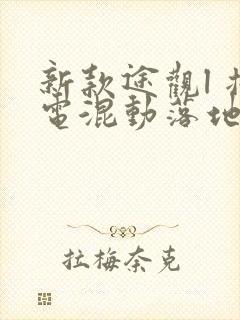 新款途觀l
電混動落地
拉梅奈克